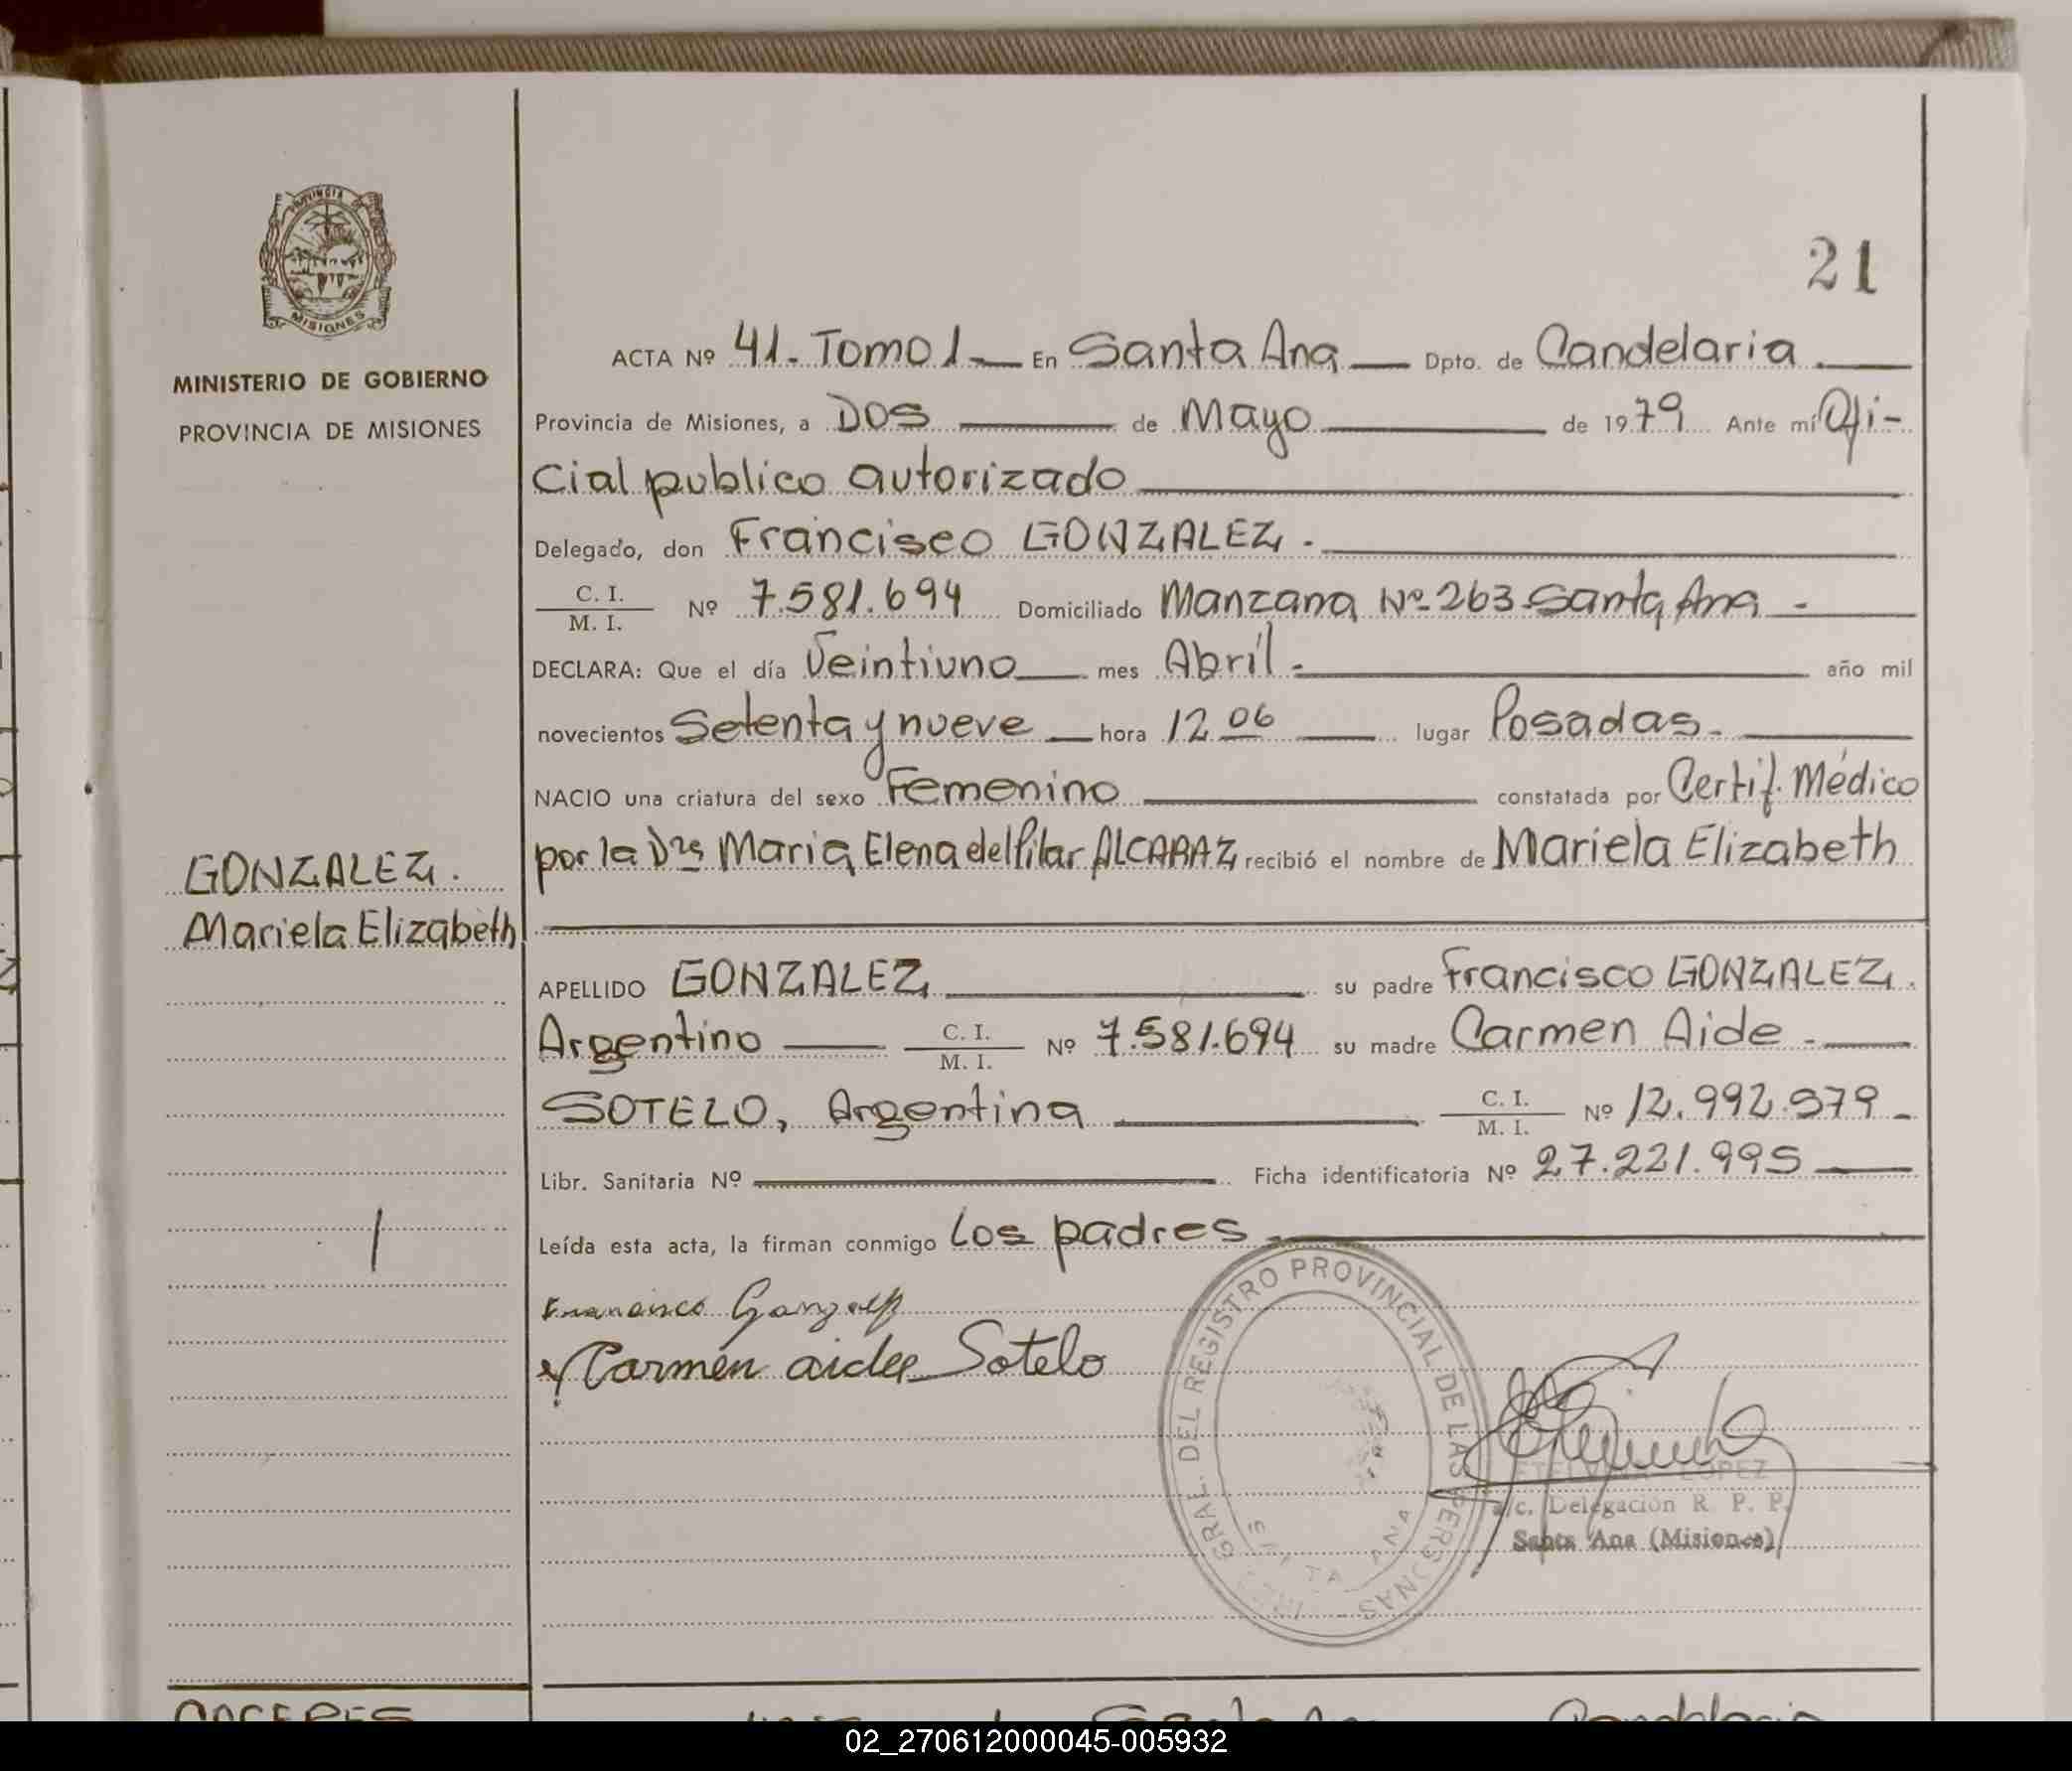 PROVINCIA DE
MISIONES
MINISTERIO DE GOBIERNO
PROVINCIA DE MISIONES
21
ACTA Nº 41. Tomo 1 En Santa Ana Dpto. de Candelaria.
Provincia de Misiones, a Dos de Mayo de 1979 Ante mí Ofi-
cial publico autorizado
Delegado, don Francisco GONZALEZ.
C. I.
M. I. Nº 7.581.694 Domiciliado Manzana Nº 263 Santa Ana -
DECLARA: Que el día Veintiuno mes Abril. año mil
novecientos Setenta y nueve hora 12 06 lugar Posadas.
NACIO una criatura del sexo Femenino constatada por Certif. Médico
por la Dra Maria Elena del Pilar ALCARAZ recibió el nombre de Mariela Elizabeth
GONZALEZ.
Mariela Elizabeth
APELLIDO GONZALEZ su padre Francisco GONZALEZ.
Argentino C. I. M. I. Nº 7.581.694 su madre Carmen Aide.
SOTELO, Argentina C. I. M. I. Nº 12.992.979-
Libr. Sanitaria Nº Ficha identificatoria Nº 27.221.995
Leída esta acta, la firman conmigo Los padres
Francisco Gonzalez
Carmen aidee Sotelo
GRAL. DEL REGISTRO PROVINCIAL DE LAS PERSONAS
SANTA ANA
LOPEZ
a/c. Delegación R. P. P.
Santa Ana (Misiones)
CACERES
Santa Ana Candelaria
02_270612000045-005932